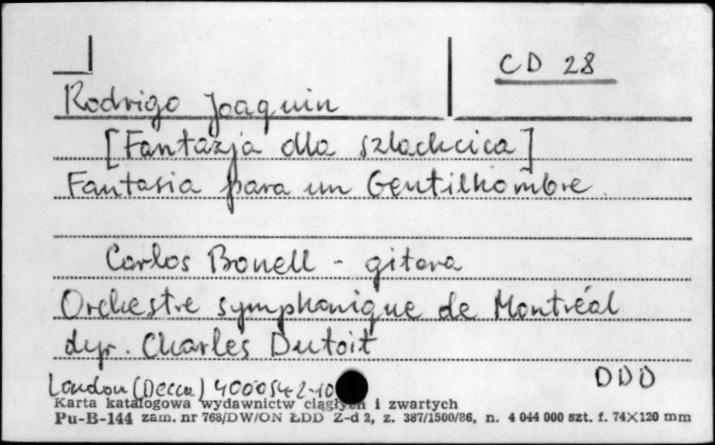 CD 28
Rodrigo Joaquin
[Fantazja dla szlachcica]
Fantasia para un Gentilhombre
Carlos Bonell - gitara
Orchestre symphonique de Montréal
dyr. Charles Dutoit
London (Decca) 4000542-10
DDD
Karta katalogowa wydawnictw ciągłych i zwartych
Pu-B-144 zam. nr 768/DW/ON ŁDD Z-d 2, z. 387/1500/86, n. 4 044 000 szt. f. 74×120 mm